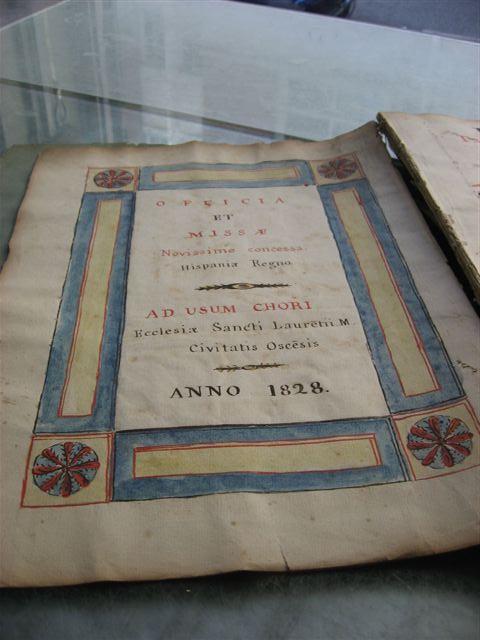 OFFICIA
ET
MISSÆ
Novissime concessa
Hispaniæ Regno
AD USUM CHORI
Ecclesiæ Sancti Laurentii M.
Civitatis Oscēsis
ANNO 1828.